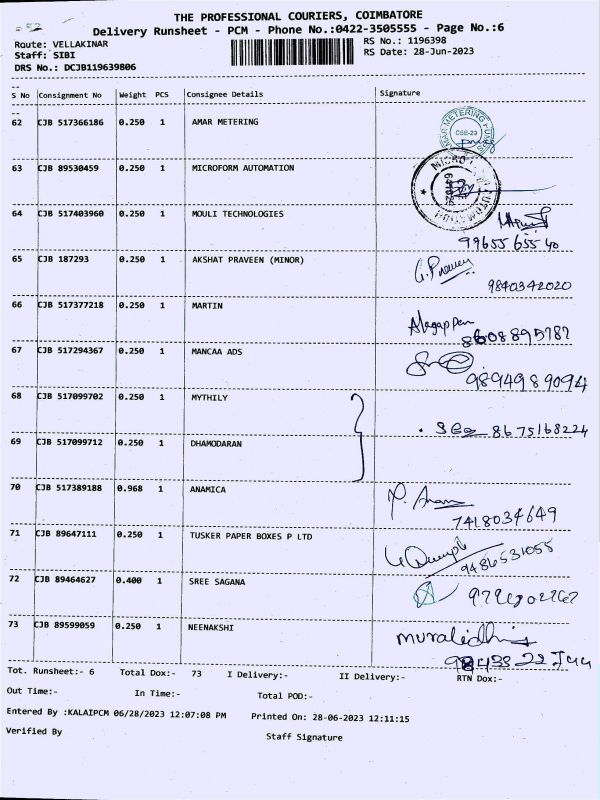 THE PROFESSIONAL COURIERS, COIMBATORE
Delivery Runsheet - PCM - Phone No.:0422-3505555 - Page No.:6
Route: VELLAKINAR
RS No.: 1196398
Staff: SIBI
RS Date: 28-Jun-2023
DRS No.: DCJB119639806
S No Consignment No Weight PCS Consignee Details Signature
62 CJB 517366186 0.250 1 AMAR METERING
AMAR METERING
CBE-29
63 CJB 89530459 0.250 1 MICROFORM AUTOMATION
64 CJB 517403960 0.250 1 MOULI TECHNOLOGIES
99655 655 40
65 CJB 187293 0.250 1 AKSHAT PRAVEEN (MINOR)
G. Praveen
9840342020
66 CJB 517377218 0.250 1 MARTIN
Alagappan
8608895787
67 CJB 517294367 0.250 1 MANCAA ADS
9894989094
68 CJB 517099702 0.250 1 MYTHILY
8675168224
69 CJB 517099712 0.250 1 DHAMODARAN
70 CJB 517389188 0.968 1 ANAMICA
7418034649
71 CJB 89647111 0.250 1 TUSKER PAPER BOXES P LTD
9486531055
72 CJB 89464627 0.400 1 SREE SAGANA
73 CJB 89599059 0.250 1 NEENAKSHI
muralidhis
Tot. Runsheet:- 6 Total Dox:- 73 I Delivery:- II Delivery:- RTN Dox:-
Out Time:- In Time:- Total POD:-
Entered By :KALAIPCM 06/28/2023 12:07:08 PM Printed On: 28-06-2023 12:11:15
Verified By Staff Signature